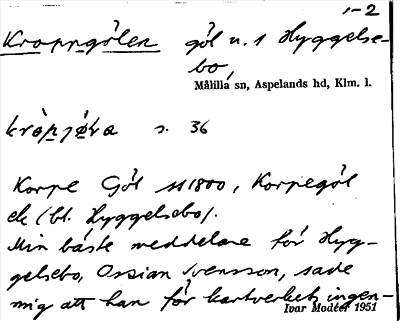 1-2
Kroppgölen göl n. 1 Hyggelse-
bo,
Målilla sn, Aspelands hd, Klm. l.
s. 36
Korpe Göl 1800, Korpegöl
ek (bl. Hyggelsebo).
Min bäste meddelare för Hyg-
gelsebo, Ossian Svensson, sade
mig att han för kartverkets ingen-
Ivar Modéer 1951